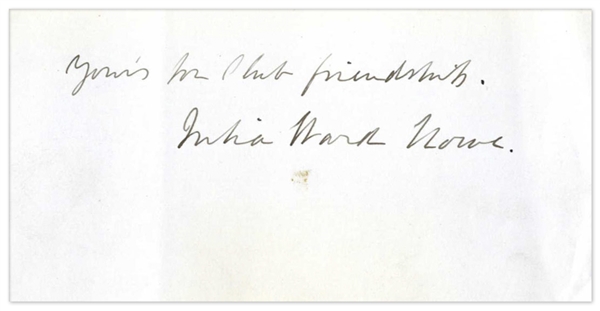 Yours for Club friendship.
Julia Ward Howe.